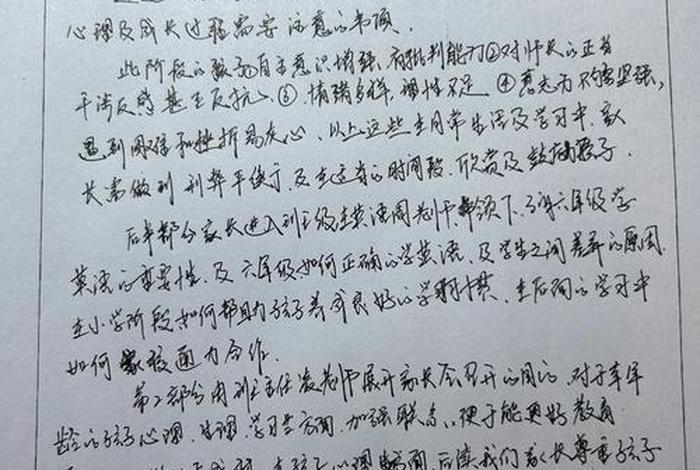 心理及成长过程需要注意的事项。
此阶段的教育自主意识增强,有批判能力②对师长的正当
干涉反感甚至反抗、③、情绪多样,理性不足 ④意志力不够坚强,
遇到困难和挫折易灰心、以上这些在日常生活及学习中,家
长需做到 别弊平使于,及在适当的时间段、欣赏及鼓励孩子.
后半部分家长进入到班级在英语周老师带领下,了解六年级学
英语的重要性、及 六年级如何正确的学英语、及学生之间差异的原因.
在小学阶段如何帮助孩子养成良好的学习习惯、在后期的学习中
如何家校通力合作.
第二部分由班主任凌老师展开家长会召开的目的、对于本年
龄的孩子心理、生理、学习等方面、加强联系,便于能更好教育
孩子心理方面,后续,我们家长尊重孩子